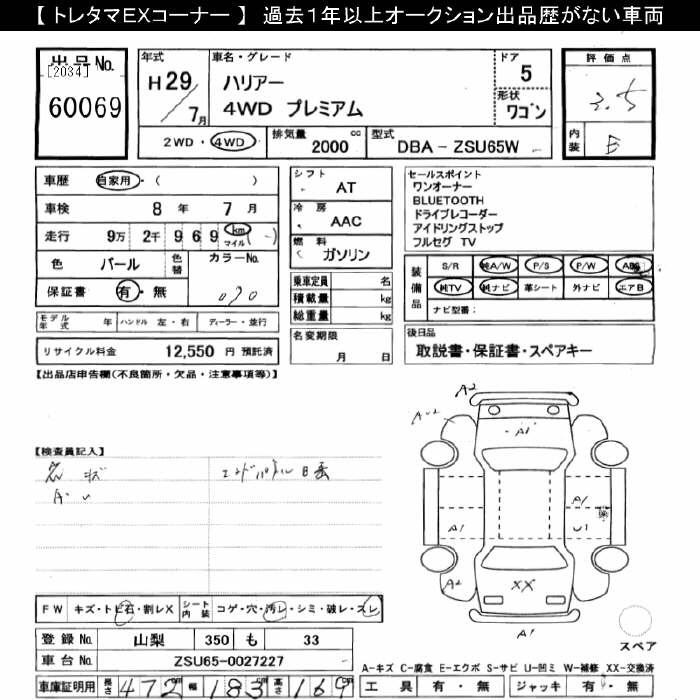 【 トレタマEXコーナー 】 過去1年以上オークション出品歴がない車両
出品No.
[2034]
60069
年式
H29/7月
車名・グレード
ハリアー
4WD プレミアム
ドア
5
形状
ワゴン
2WD・4WD
排気量
2000 cc
型式
DBA - ZSU65W
評価点
3.5
内装
B
車歴 自家用・( )
車検 8年 7月
走行 9万 2千 9 6 9 km マイル (-)
色 パール 色替 カラーNo.
保証書 有・無 070
モデル年式 年 ハンドル 左・右 ディーラー・並行
リサイクル料金 12,550 円 預託済
シフト AT
冷房 AAC
燃料 ガソリン
乗車定員 名
積載量 kg
総重量 kg
名変期限
月 日
セールスポイント
ワンオーナー
BLUETOOTH
ドライブレコーダー
アイドリングストップ
フルセグ TV
装備品
S/R 純A/W P/S P/W ABS
純TV 純ナビ 革シート 外ナビ エアB
ナビ型番:
後日品
取説書・保証書・スペアキー
【出品店申告欄(不良箇所・欠品・注意事項等)】
【検査員記入】
キズ
A・U
A2
A・U2
A1
A1
A1
U1
A2
XX
A1
スペア
FW キズ・トビ石・割レX シート内装 コゲ・穴・汚レ・シミ・破レ・スレ
登録No. 山梨 350 も 33
車台No. ZSU65-0027227
車庫証明用 長さ 472cm 幅 183cm 高さ 169cm
A-キズ C-腐食 E-エクボ S-サビ U-凹ミ W-補修 XX-交換済
工具 有・無 ジャッキ 有・無